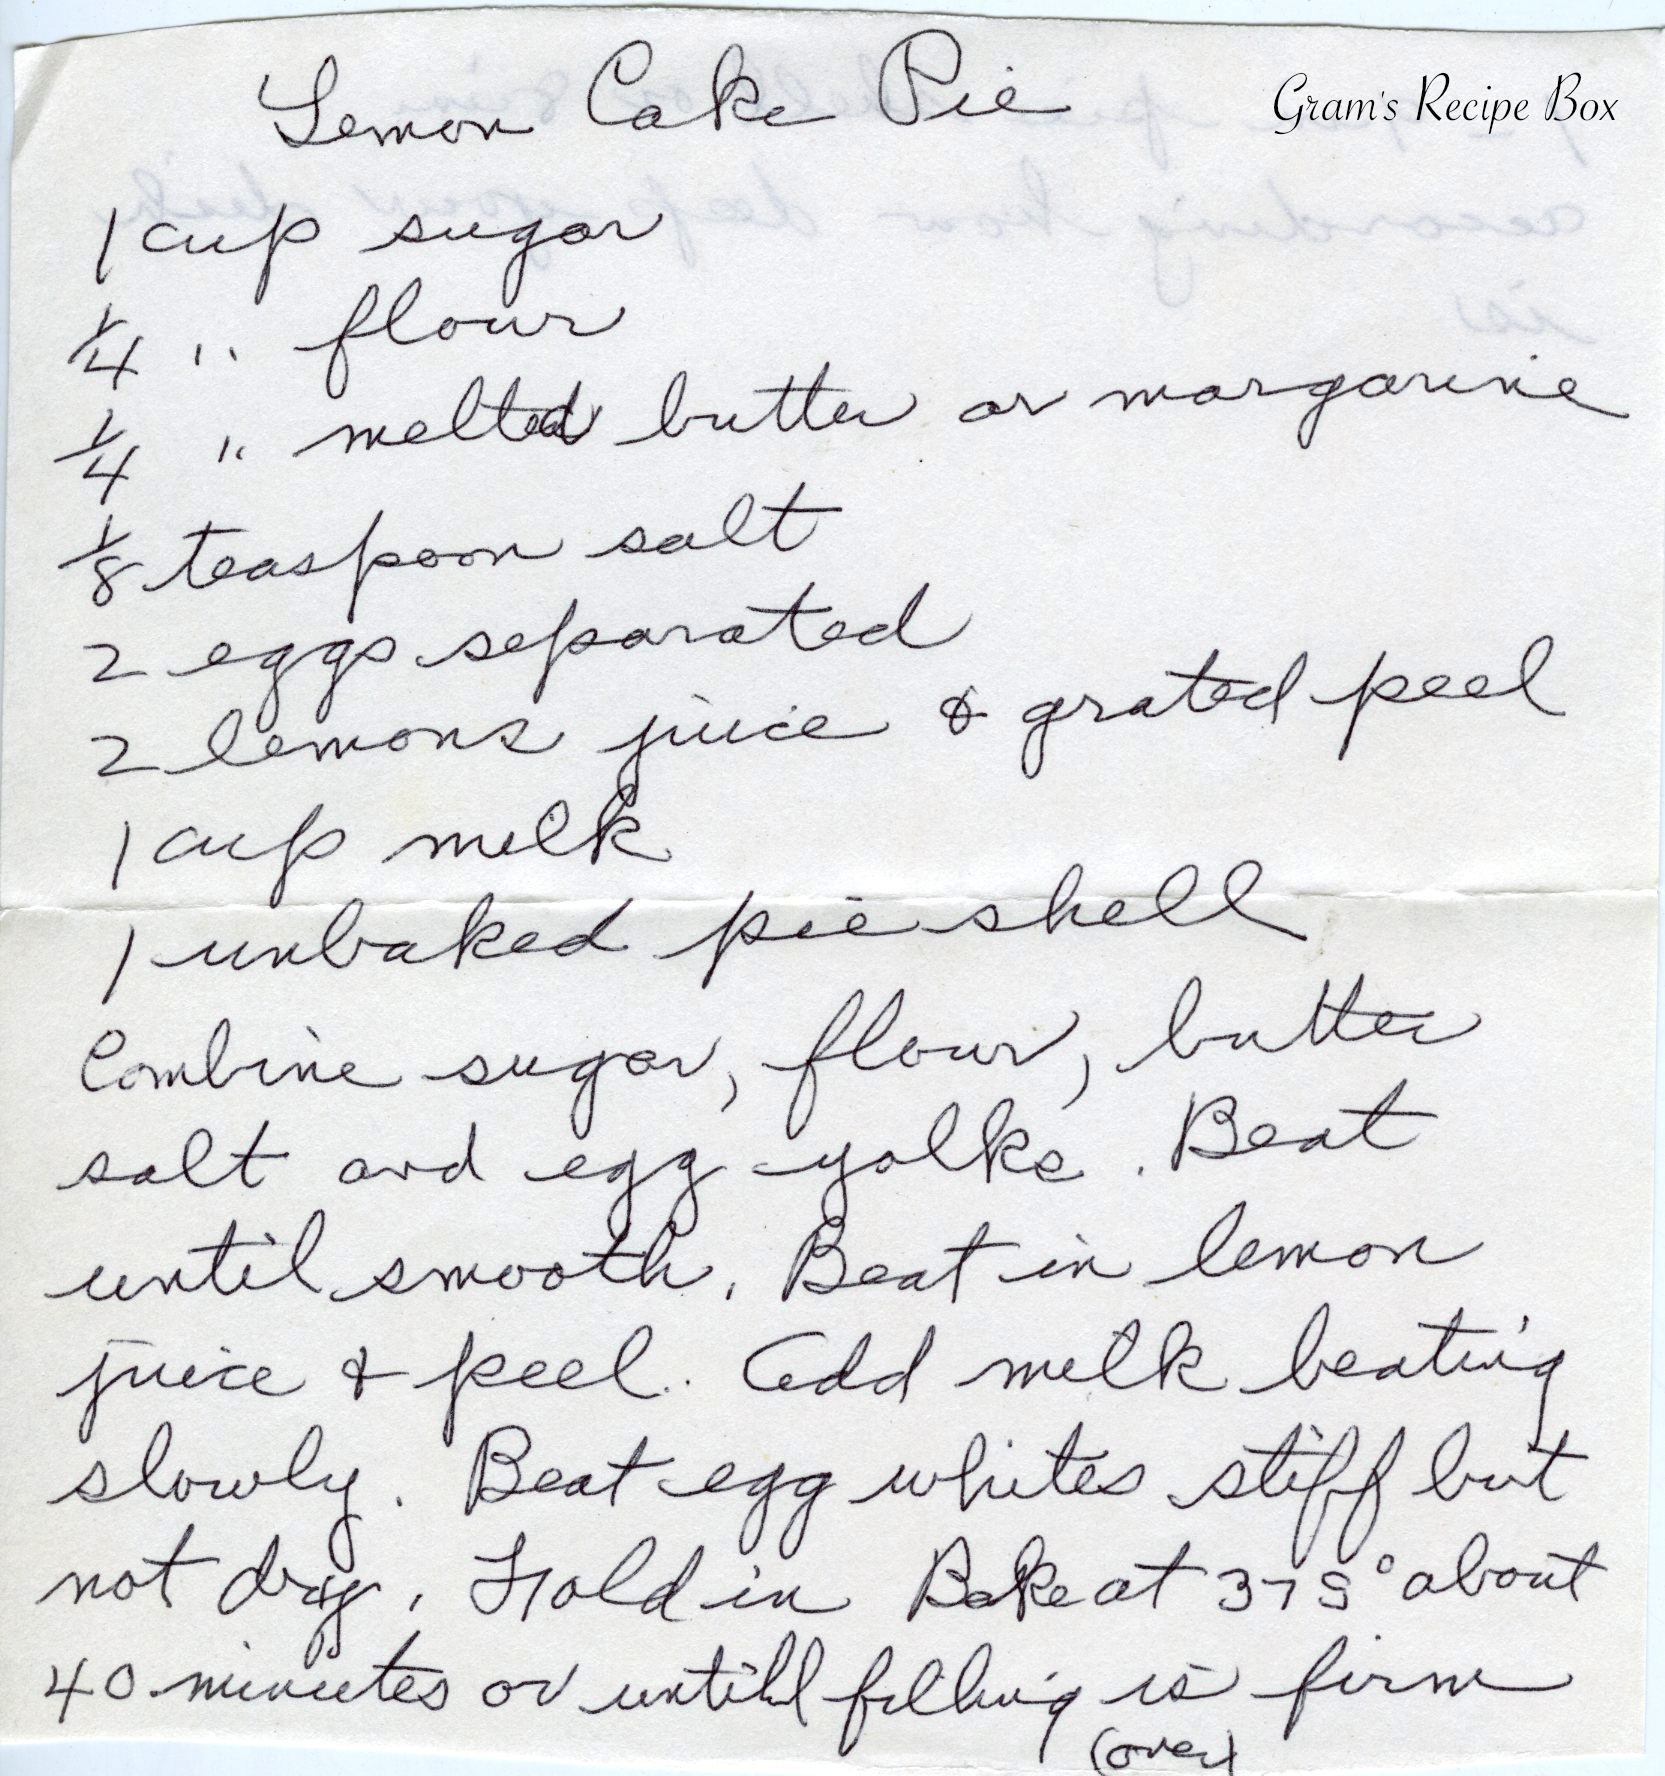 Lemon Cake Pie
Gram's Recipe Box
1 cup sugar
1/4 " flour
1/4 " melted butter or margarine
1/8 teaspoon salt
2 eggs separated
2 lemons juice & grated peel
1 cup milk
1 unbaked pie shell
Combine sugar, flour, butter
salt and egg yolks. Beat
until smooth. Beat in lemon
juice & peel. Add milk beating
slowly. Beat egg whites stiff but
not dry. Fold in Bake at 375° about
40 minutes or until filling is firm
(over)
according how deep your dish
is